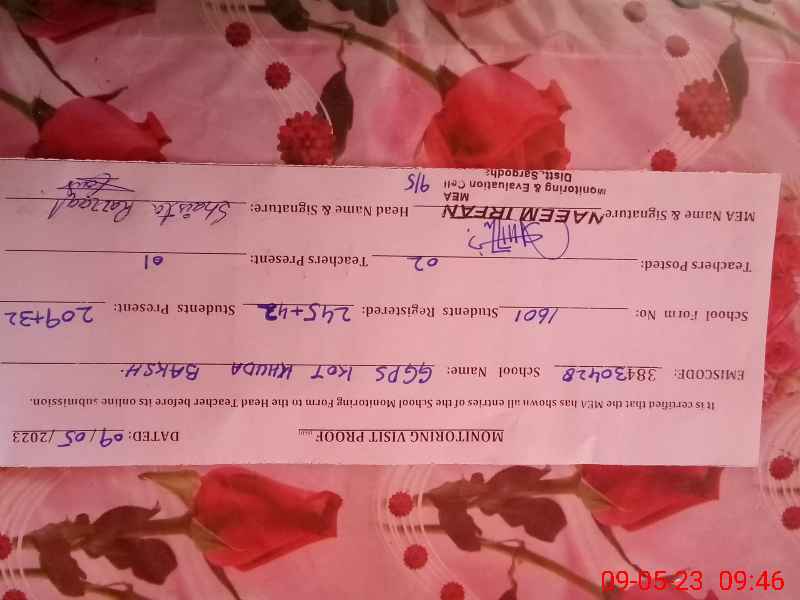 MONITORING VISIT PROOF DATED: 09/05/2023
It is certified that the MEA has shown all entries of the School Monitoring Form to the Head Teacher before its online submission.
EMISCODE: 38430428 School Name: GGPS KOT KHUDA BAKSH.
School Form No: 1601 Students Registered: 245+42 Students Present: 209+32
Teachers Posted: 02 Teachers Present: 01
MEA Name & Signature Head Name & Signature: Shaista Razzaq
NAEEM IRFAN
MEA
Monitoring & Evaluation Cell
Distt. Sargodha
9/5
09-05-23 09:46